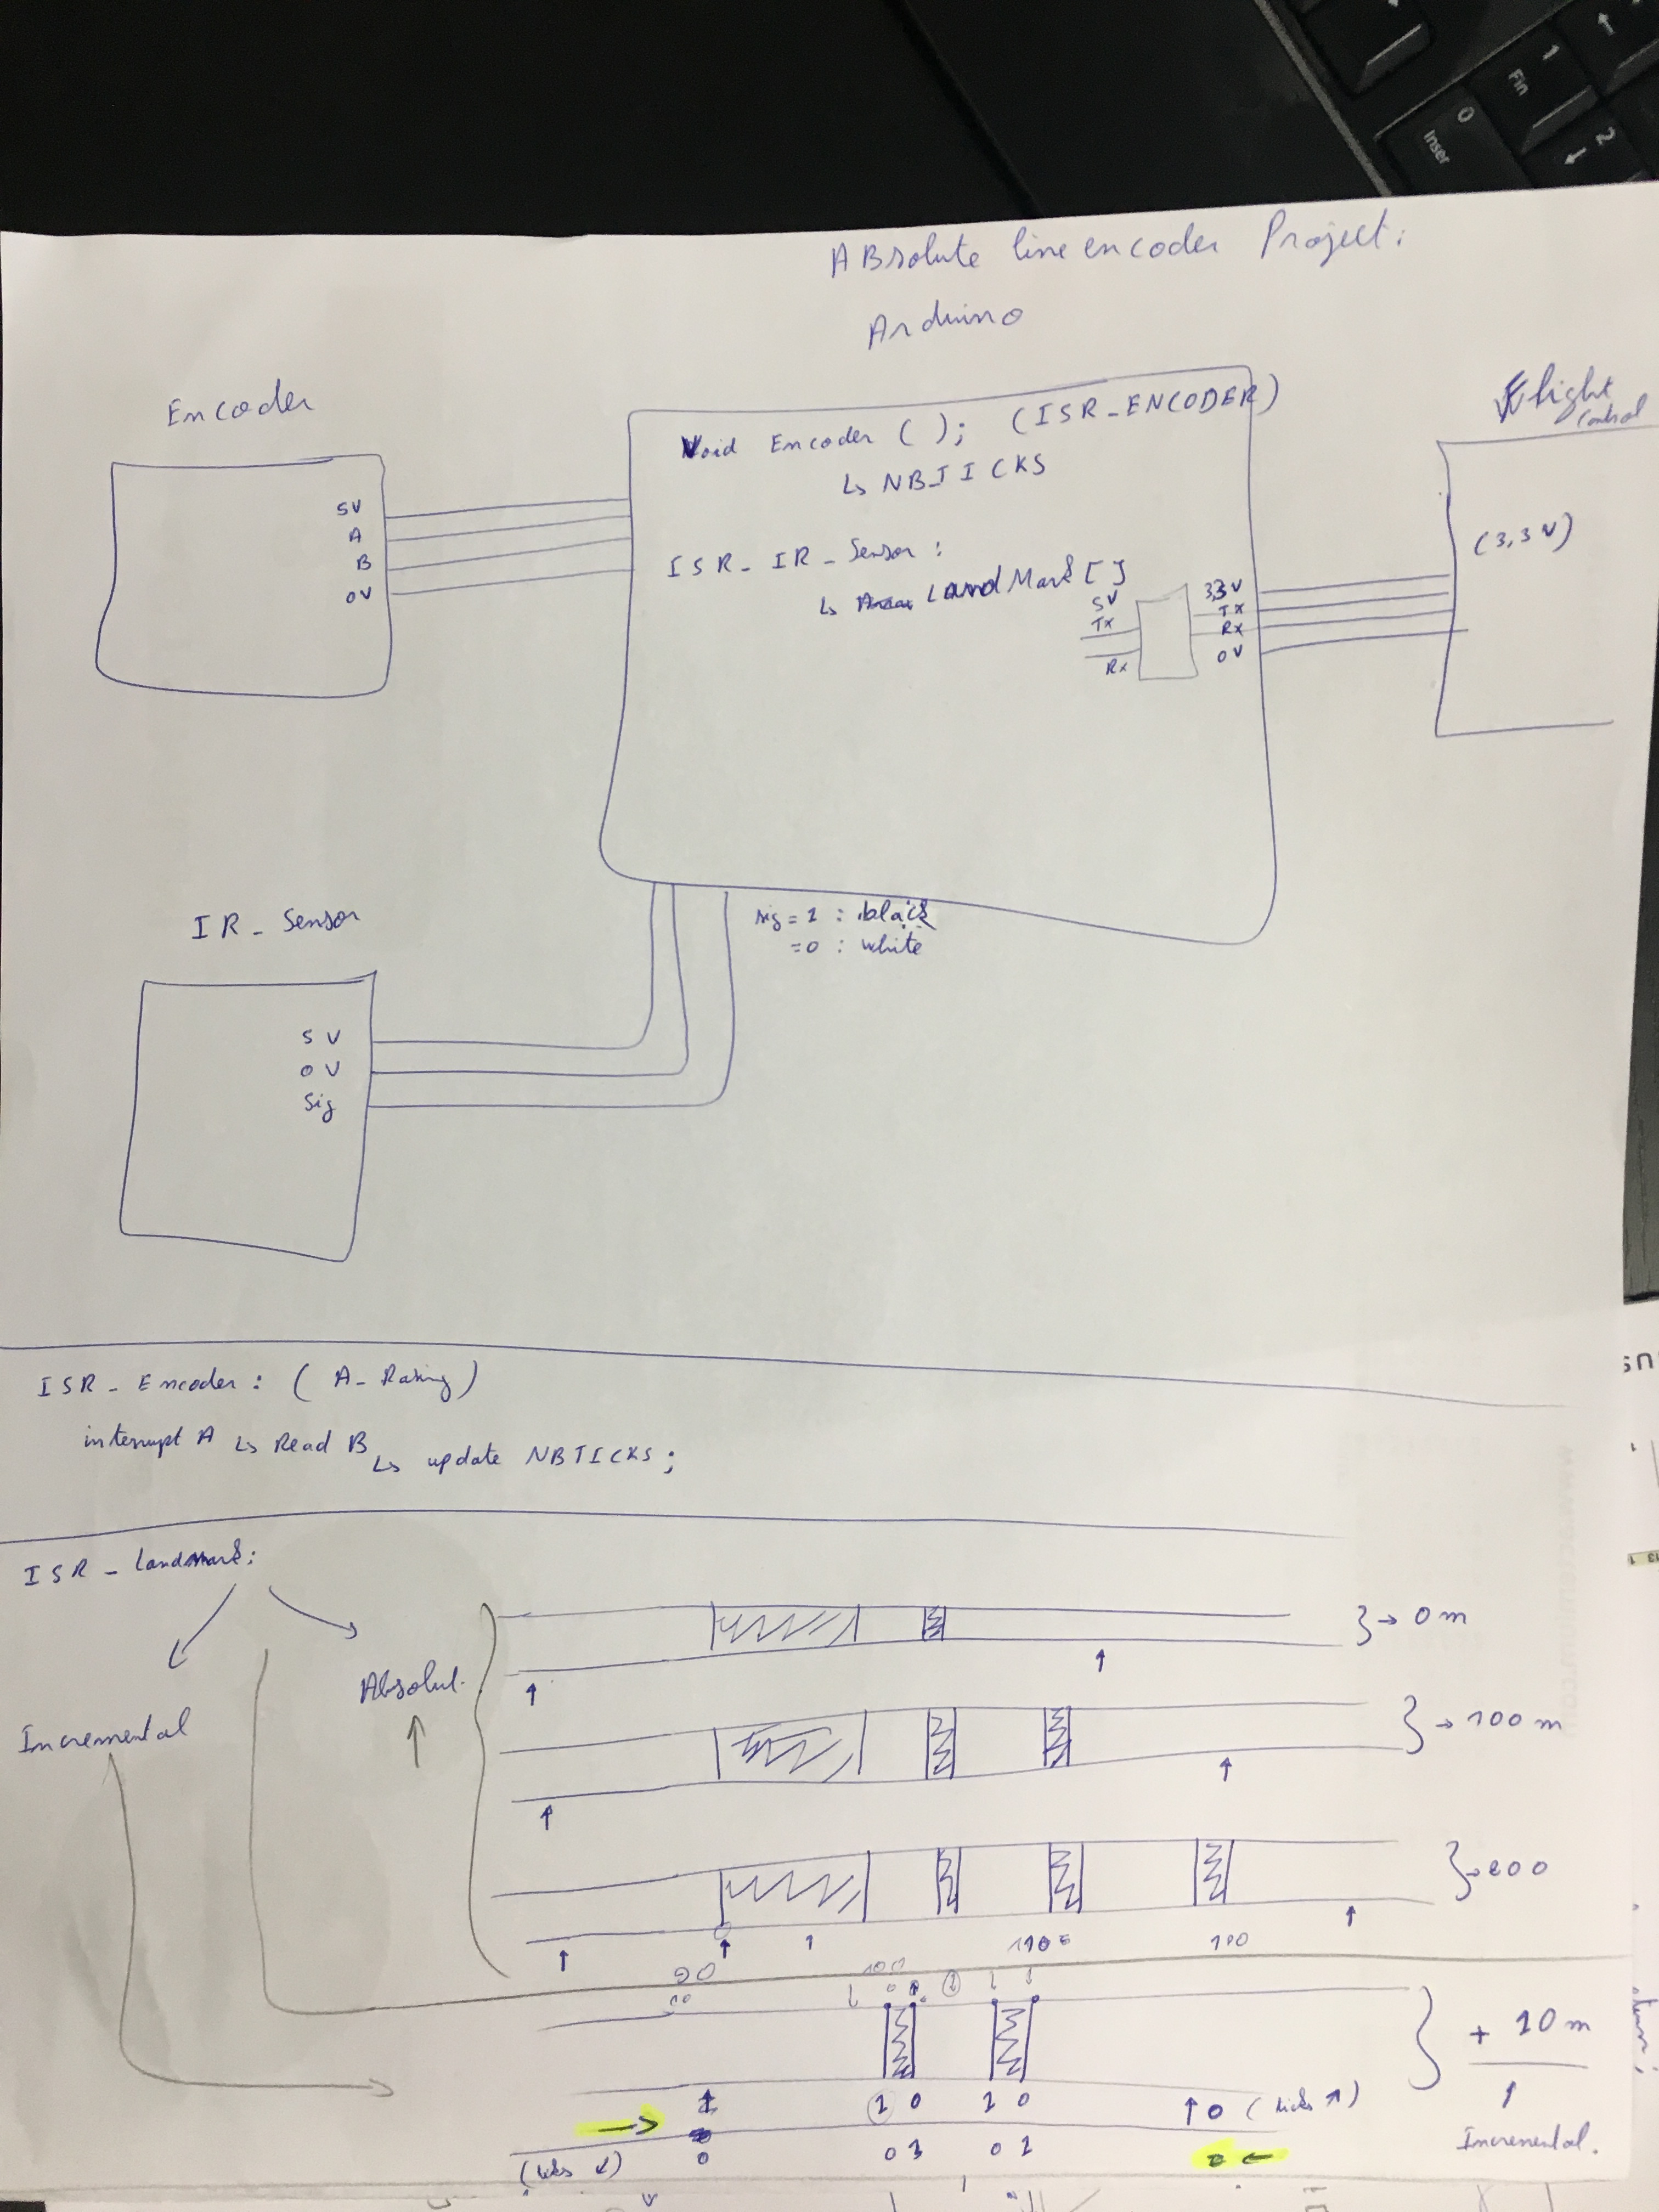 0
Inser
1
Fin
2
ABsolute line encoder Project:
Arduino
Encoder
5V
A
B
0V
Void Encoder ( ); (ISR_ENCODER)
↳ NB_TICKS
ISR_IR_Sensor :
↳ LandMark [ ]
5V
Tx
Rx
3,3V
Tx
Rx
0V
Flight
Control
(3,3V)
IR_Sensor
5V
0V
Sig
sig = 1 : black
= 0 : white
ISR_Encoder : ( A_Rising )
interrupt A ↳ Read B ↳ update NBTICKS ;
ISR_Landmark :
Incremental
Absolut.
} → 0m
} → 100m
} → 200
1
100
} + 10m
Incremental.
1 0 1 0 ↑ 0 ( ticks ↗ )
→
( ticks ↙ ) 0 0 1 0 1 0 ←